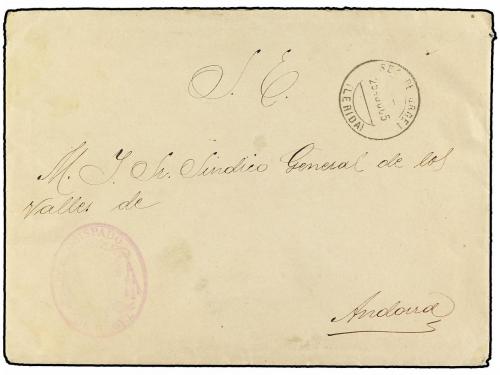 S. E.
SEO DE URGEL
(LERIDA)
M. I. Sr. Síndico General de los
Valles de
Andorra
OBISPADO